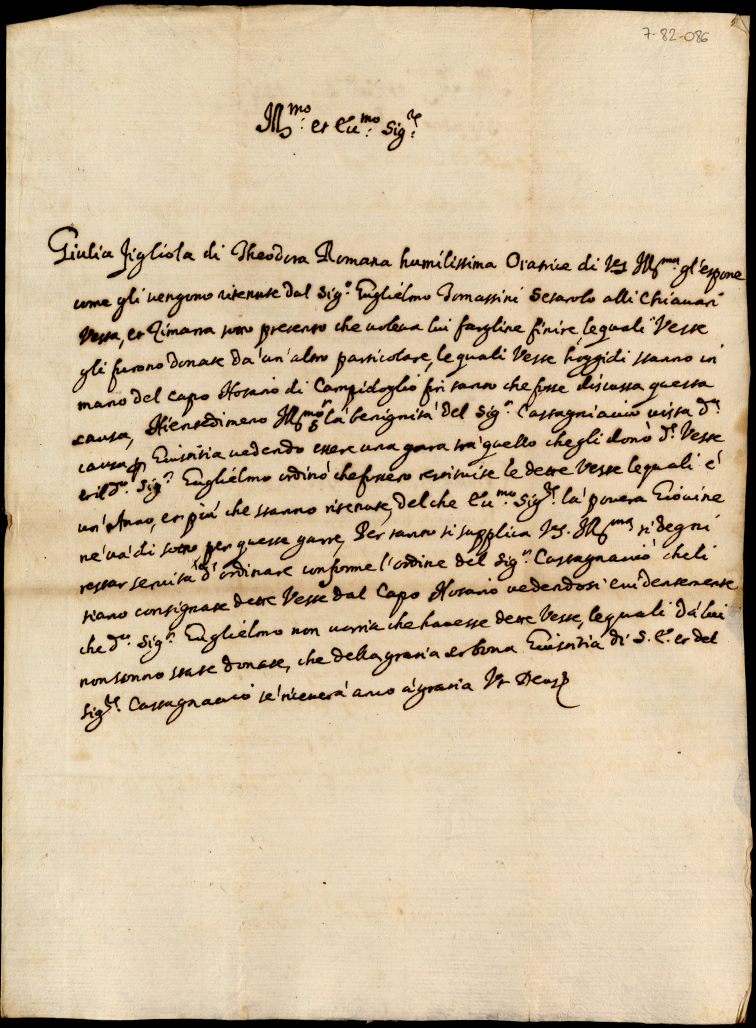 7-82-086
Ill.mo et Ecc.mo Sig.re
Giulia figliola di Theodora Romana humilissima Oratrice di V.S. Ill.ma gl'espone
come gli vengono ritenute dal Sig.r Guglielmo Tomassini Setarolo alli Chiavari
Veste, et Zimarra sotto pretesto che voleva lui fargline finire, le quali Veste
gli furono donate da un'altro particolare, le quali Veste hoggidi stanno in
mano del capo Notario di Campidoglio fin tanto che fosse discussa questa
causa, Nientedimeno Ill.mo S.r la benignità del Sig.r Castagnaccio vista d.a
causa per Giustitia vedendo essere una gara trà quello che gli donò d.e Veste
et il d.o Sig.r Guglielmo ordinò che fossero restituite le dette Veste le quali è
un'Anno, et più che stanno ritenute, del che Ecc.mo Sig.re la povera Giovine
ne và di sotto per queste garre, Per tanto si supplica V.S. Ill.ma si degni
restar servita d'ordinare conforme l'ordine del Sig.r Castagnaccio che li
siano consignate dette Veste dal Capo Notario vedendosi evidentemente
che d.o Sig.r Guglielmo non vorria che havesse dette Veste, le quali da lui
non sonno state donate, che della gratia et bona Giustitia di S. E. et del
Sig.re Castagnaccio se riceverà anco à gratia Ut Deus